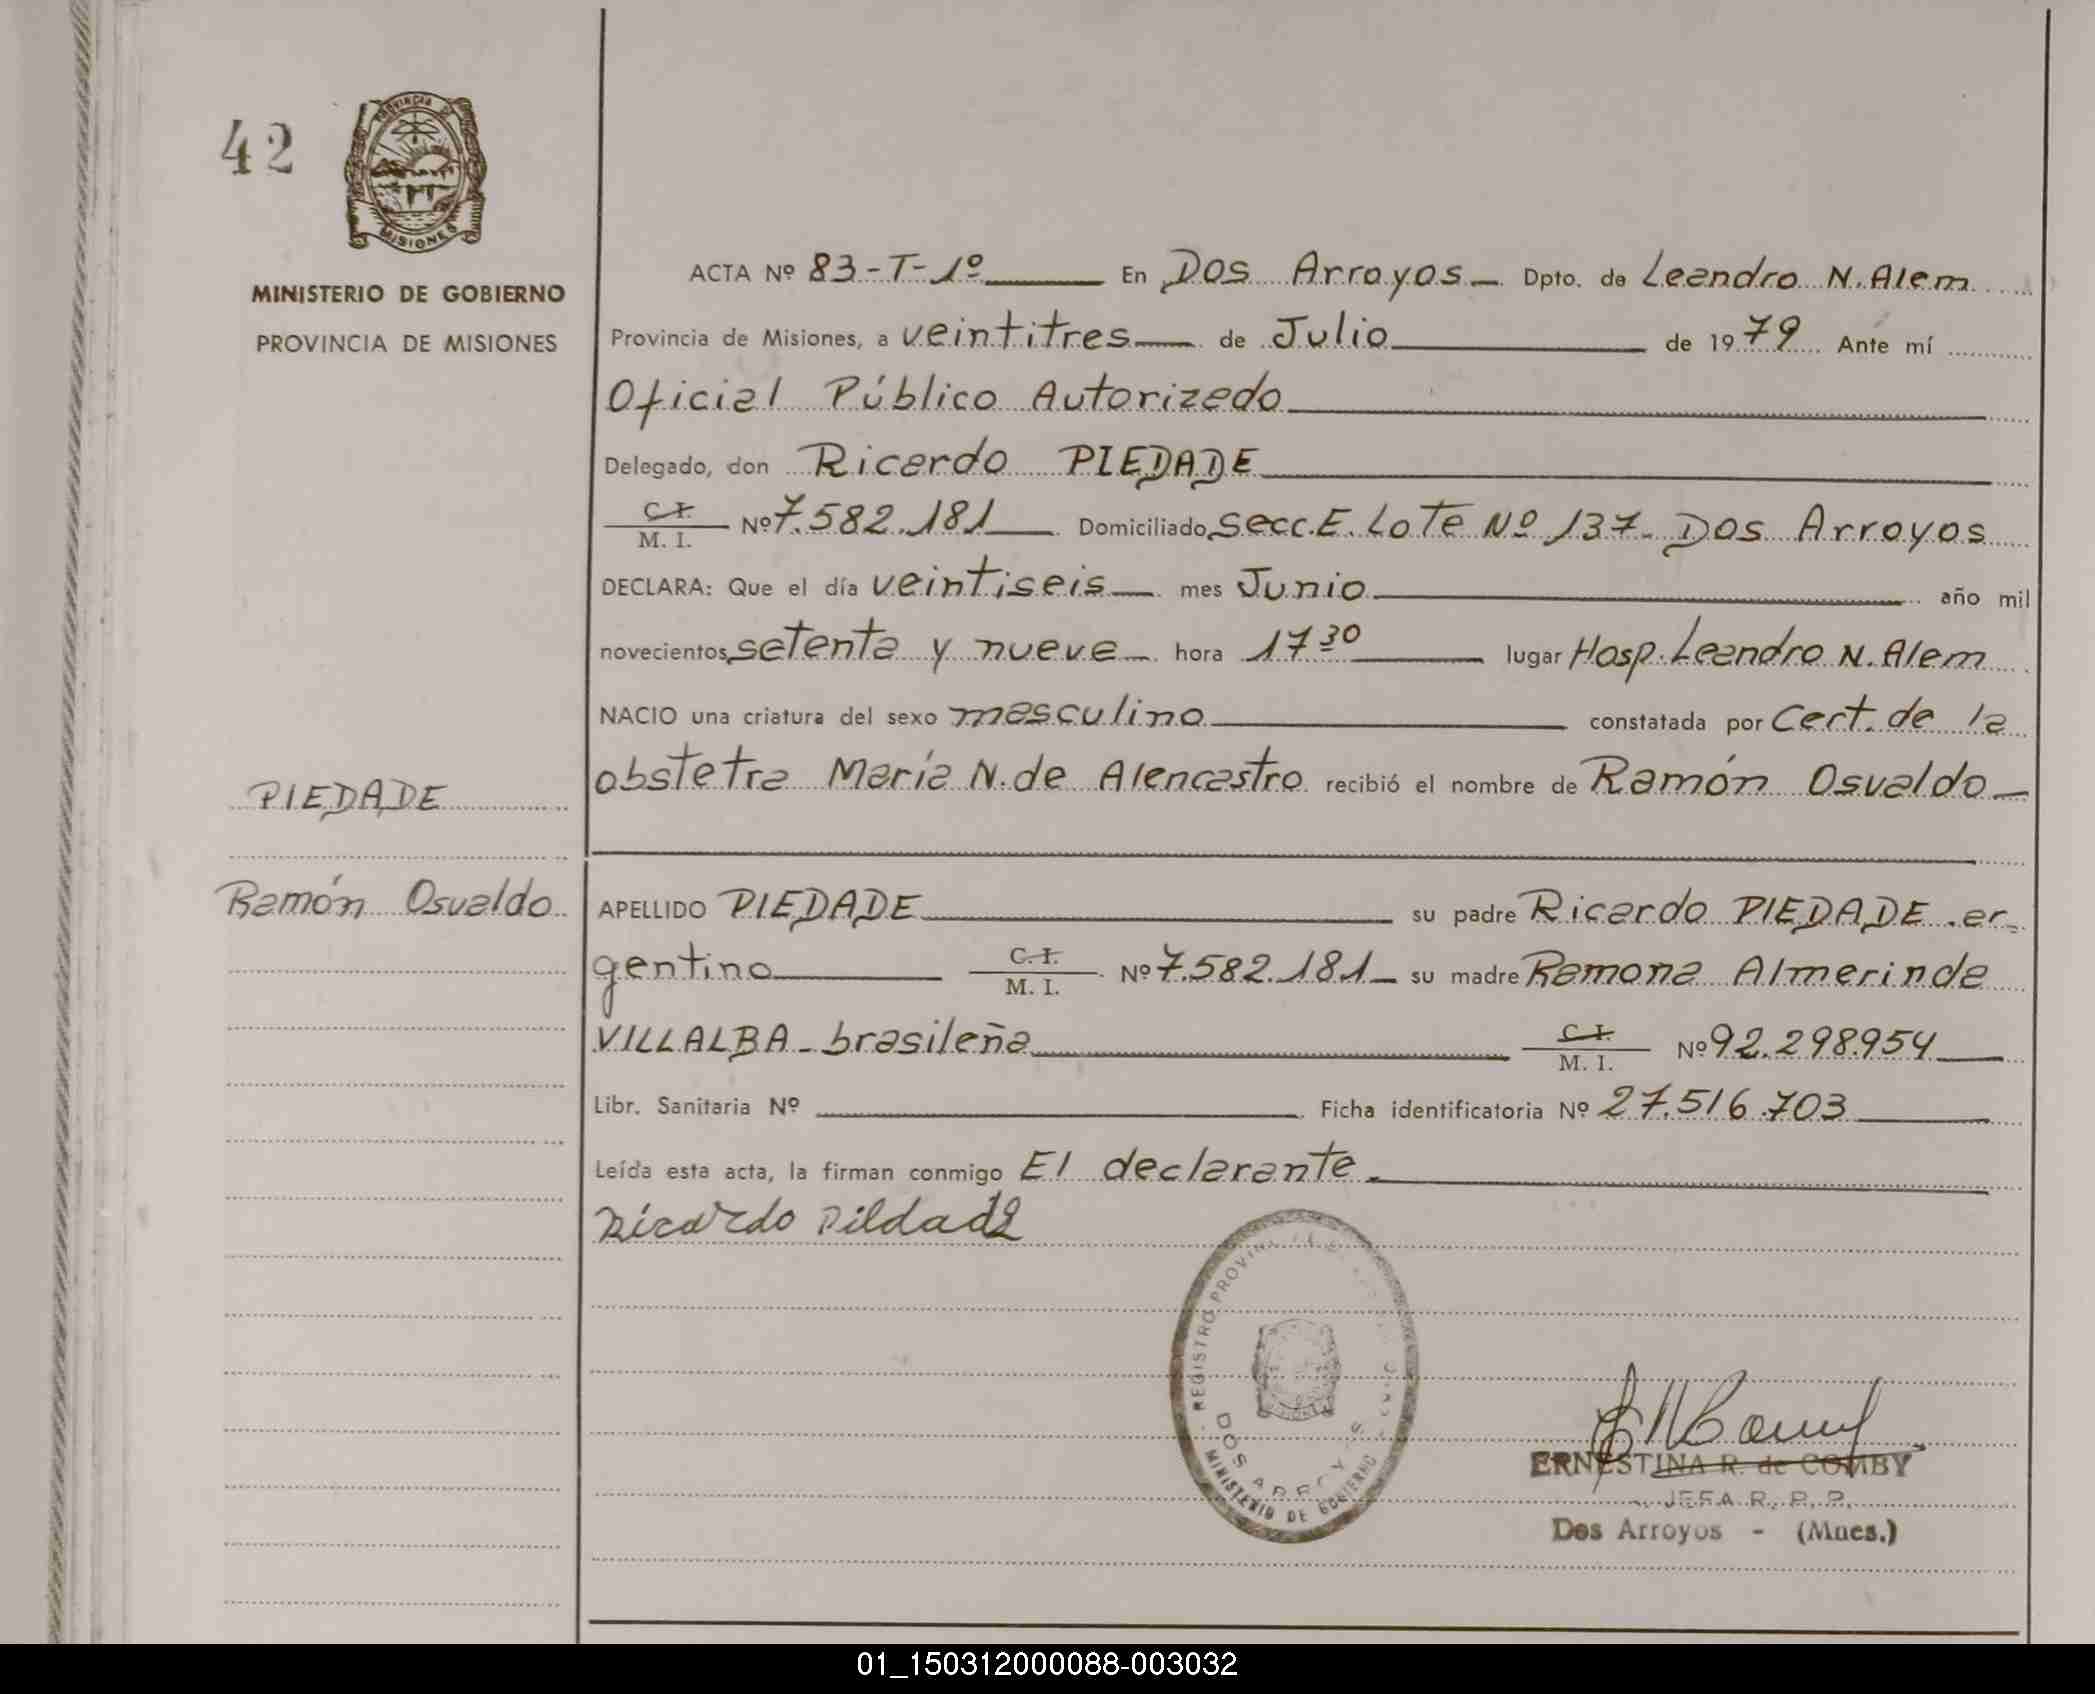 42
PROVINCIA DE
MISIONES
MINISTERIO DE GOBIERNO
PROVINCIA DE MISIONES
ACTA Nº 83-T-1º En Dos Arroyos Dpto. de Leandro N. Alem
Provincia de Misiones, a veintitres de Julio de 1979 Ante mí
Oficial Público Autorizado
Delegado, don Ricardo PIEDADE
C. I.
M. I. Nº 7.582.181 Domiciliado Secc. E. Lote Nº 137- Dos Arroyos
DECLARA: Que el día veintiseis mes Junio año mil
novecientos setenta y nueve hora 17 30 lugar Hosp. Leandro N. Alem
NACIO una criatura del sexo masculino constatada por Cert. de la
obstetra María N. de Alencastro recibió el nombre de Ramón Osvaldo
PIEDADE
Ramón Osvaldo
APELLIDO PIEDADE su padre Ricardo PIEDADE. ar-
gentino C. I.
M. I. Nº 7.582.181 su madre Ramona Almerinda
VILLALBA - brasileña C. I.
M. I. Nº 92.298.954
Libr. Sanitaria Nº Ficha identificatoria Nº 27.516.703
Leída esta acta, la firman conmigo El declarante.
Ricardo Pildade
REGISTRO PROVIN
DOS ARROYOS
MINISTERIO DE GOBIERNO
ERNESTINA R. de COMBY
JEFA R. P. P.
Dos Arroyos - (Mnes.)
01_150312000088-003032